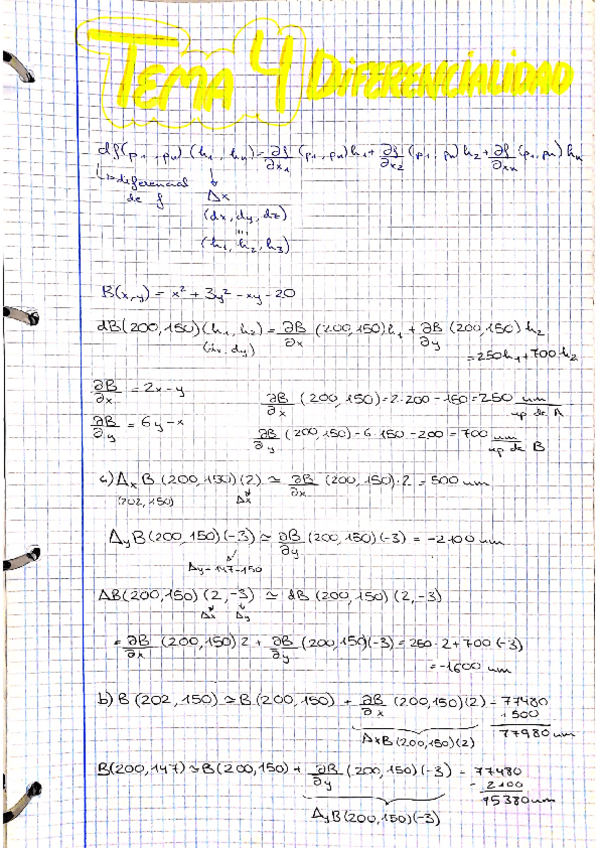 TEMA 4 DIFERENCIALIDAD
df(p1, .., pn)(h1, .., hn) = ∂f/∂x1 (p1, .., pn)h1 + ∂f/∂x2 (p1, .., pn)h2 + ∂f/∂xn (p1, .., pn)hn
↳ diferencial de f
↓
Δx
(dx, dy, dz)
"
(h1, h2, h3)
B(x,y) = x² + 3y² - xy - 20
dB(200,150)(h1, h2) = ∂B/∂x (200,150)h1 + ∂B/∂y (200,150)h2
(dx, dy)
= 250h1 + 700h2
∂B/∂x = 2x - y
∂B/∂x (200,150) = 2·200 - 150 = 250 um/up de A
∂B/∂y = 6y - x
∂B/∂y (200,150) = 6·150 - 200 = 700 um/up de B
a) ΔxB(200,150)(2) ≃ ∂B/∂x (200,150)·2 = 500 um
(202,150) Δx
ΔyB(200,150)(-3) ≃ ∂B/∂y (200,150)(-3) = -2100 um
Δy = 147-150
ΔB(200,150)(2,-3) ≃ dB(200,150)(2,-3)
Δx Δy
= ∂B/∂x (200,150)2 + ∂B/∂y (200,150)(-3) = 250·2 + 700(-3)
= -1600 um
b) B(202,150) ≃ B(200,150) + ∂B/∂x (200,150)(2) = 77480
+500
ΔxB(200,150)(2)
77980 um
B(200,147) ≃ B(200,150) + ∂B/∂y (200,150)(-3) = 77480
- 2100
75380 um
ΔyB(200,150)(-3)